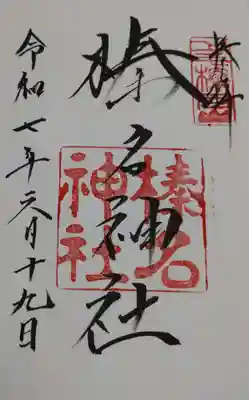 奉拝
榛名神社
榛名
神社
令和七年六月十九日